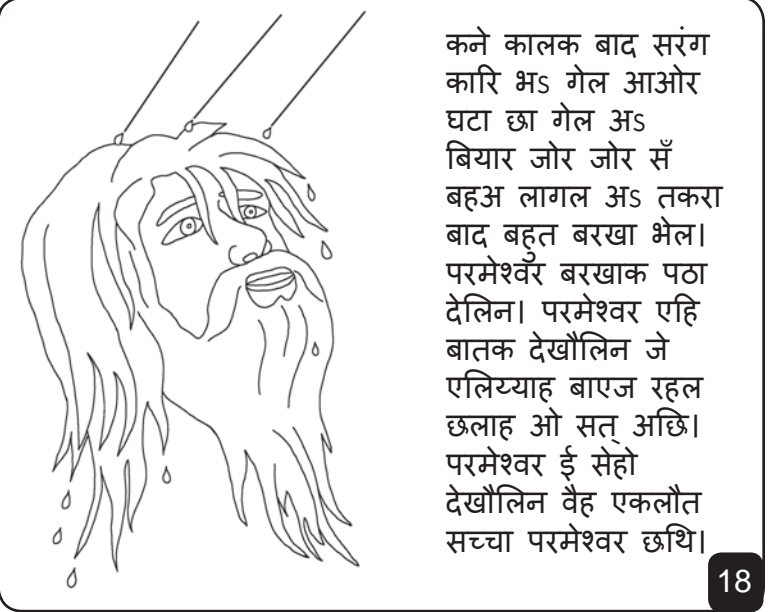 कने कालक बाद सरंग
कारि भऽ गेल आओर
घटा छा गेल अऽ
बियार जोर जोर सँ
बहअ लागल अऽ तकरा
बाद बहुत बरखा भेल।
परमेश्वर बरखाक पठा
देलिन। परमेश्वर एहि
बातक देखौलिन जे
एलिय्याह बाएज रहल
छलाह ओ सत् अछि।
परमेश्वर ई सेहो
देखौलिन वैह एकलौत
सच्चा परमेश्वर छथि।
18